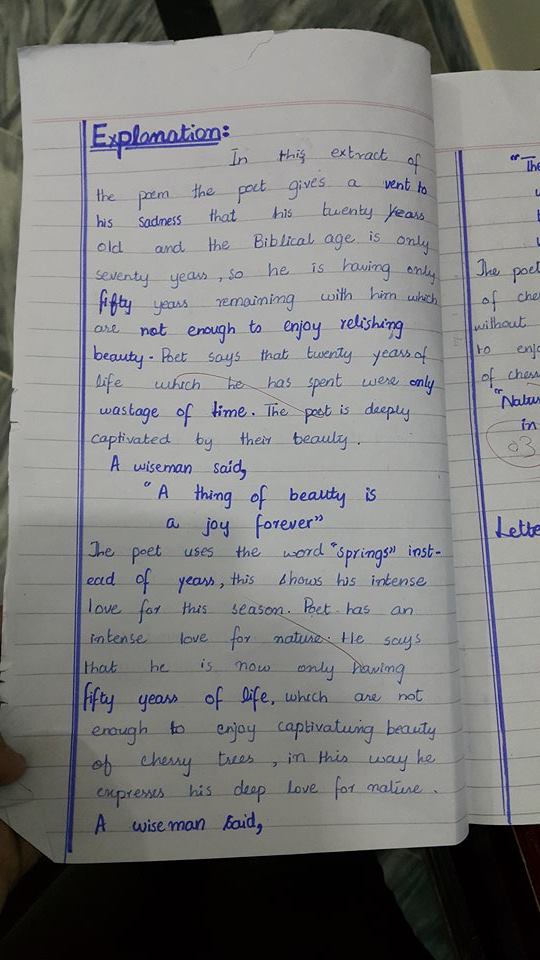 Explanation:
In this extract of
the poem the poet gives a vent to
his sadness that his twenty years
old and the Biblical age is only
seventy years, so he is having only
fifty years remaining with him which
are not enough to enjoy relishing
beauty. Poet says that twenty years of
life which he has spent were only
wastage of time. The poet is deeply
captivated by their beauty.
A wiseman said,
"A thing of beauty is
a joy forever"
The poet uses the word "springs" inst-
ead of years, this shows his intense
love for this season. Poet has an
intense love for nature. He says
that he is now only having
fifty years of life, which are not
enough to enjoy captivatuing beauty
of cherry trees, in this way he
expresses his deep love for nature.
A wise man said,
"The
The poet
of che
without
to enjo
of cherr
"Natur
in
03
Lette